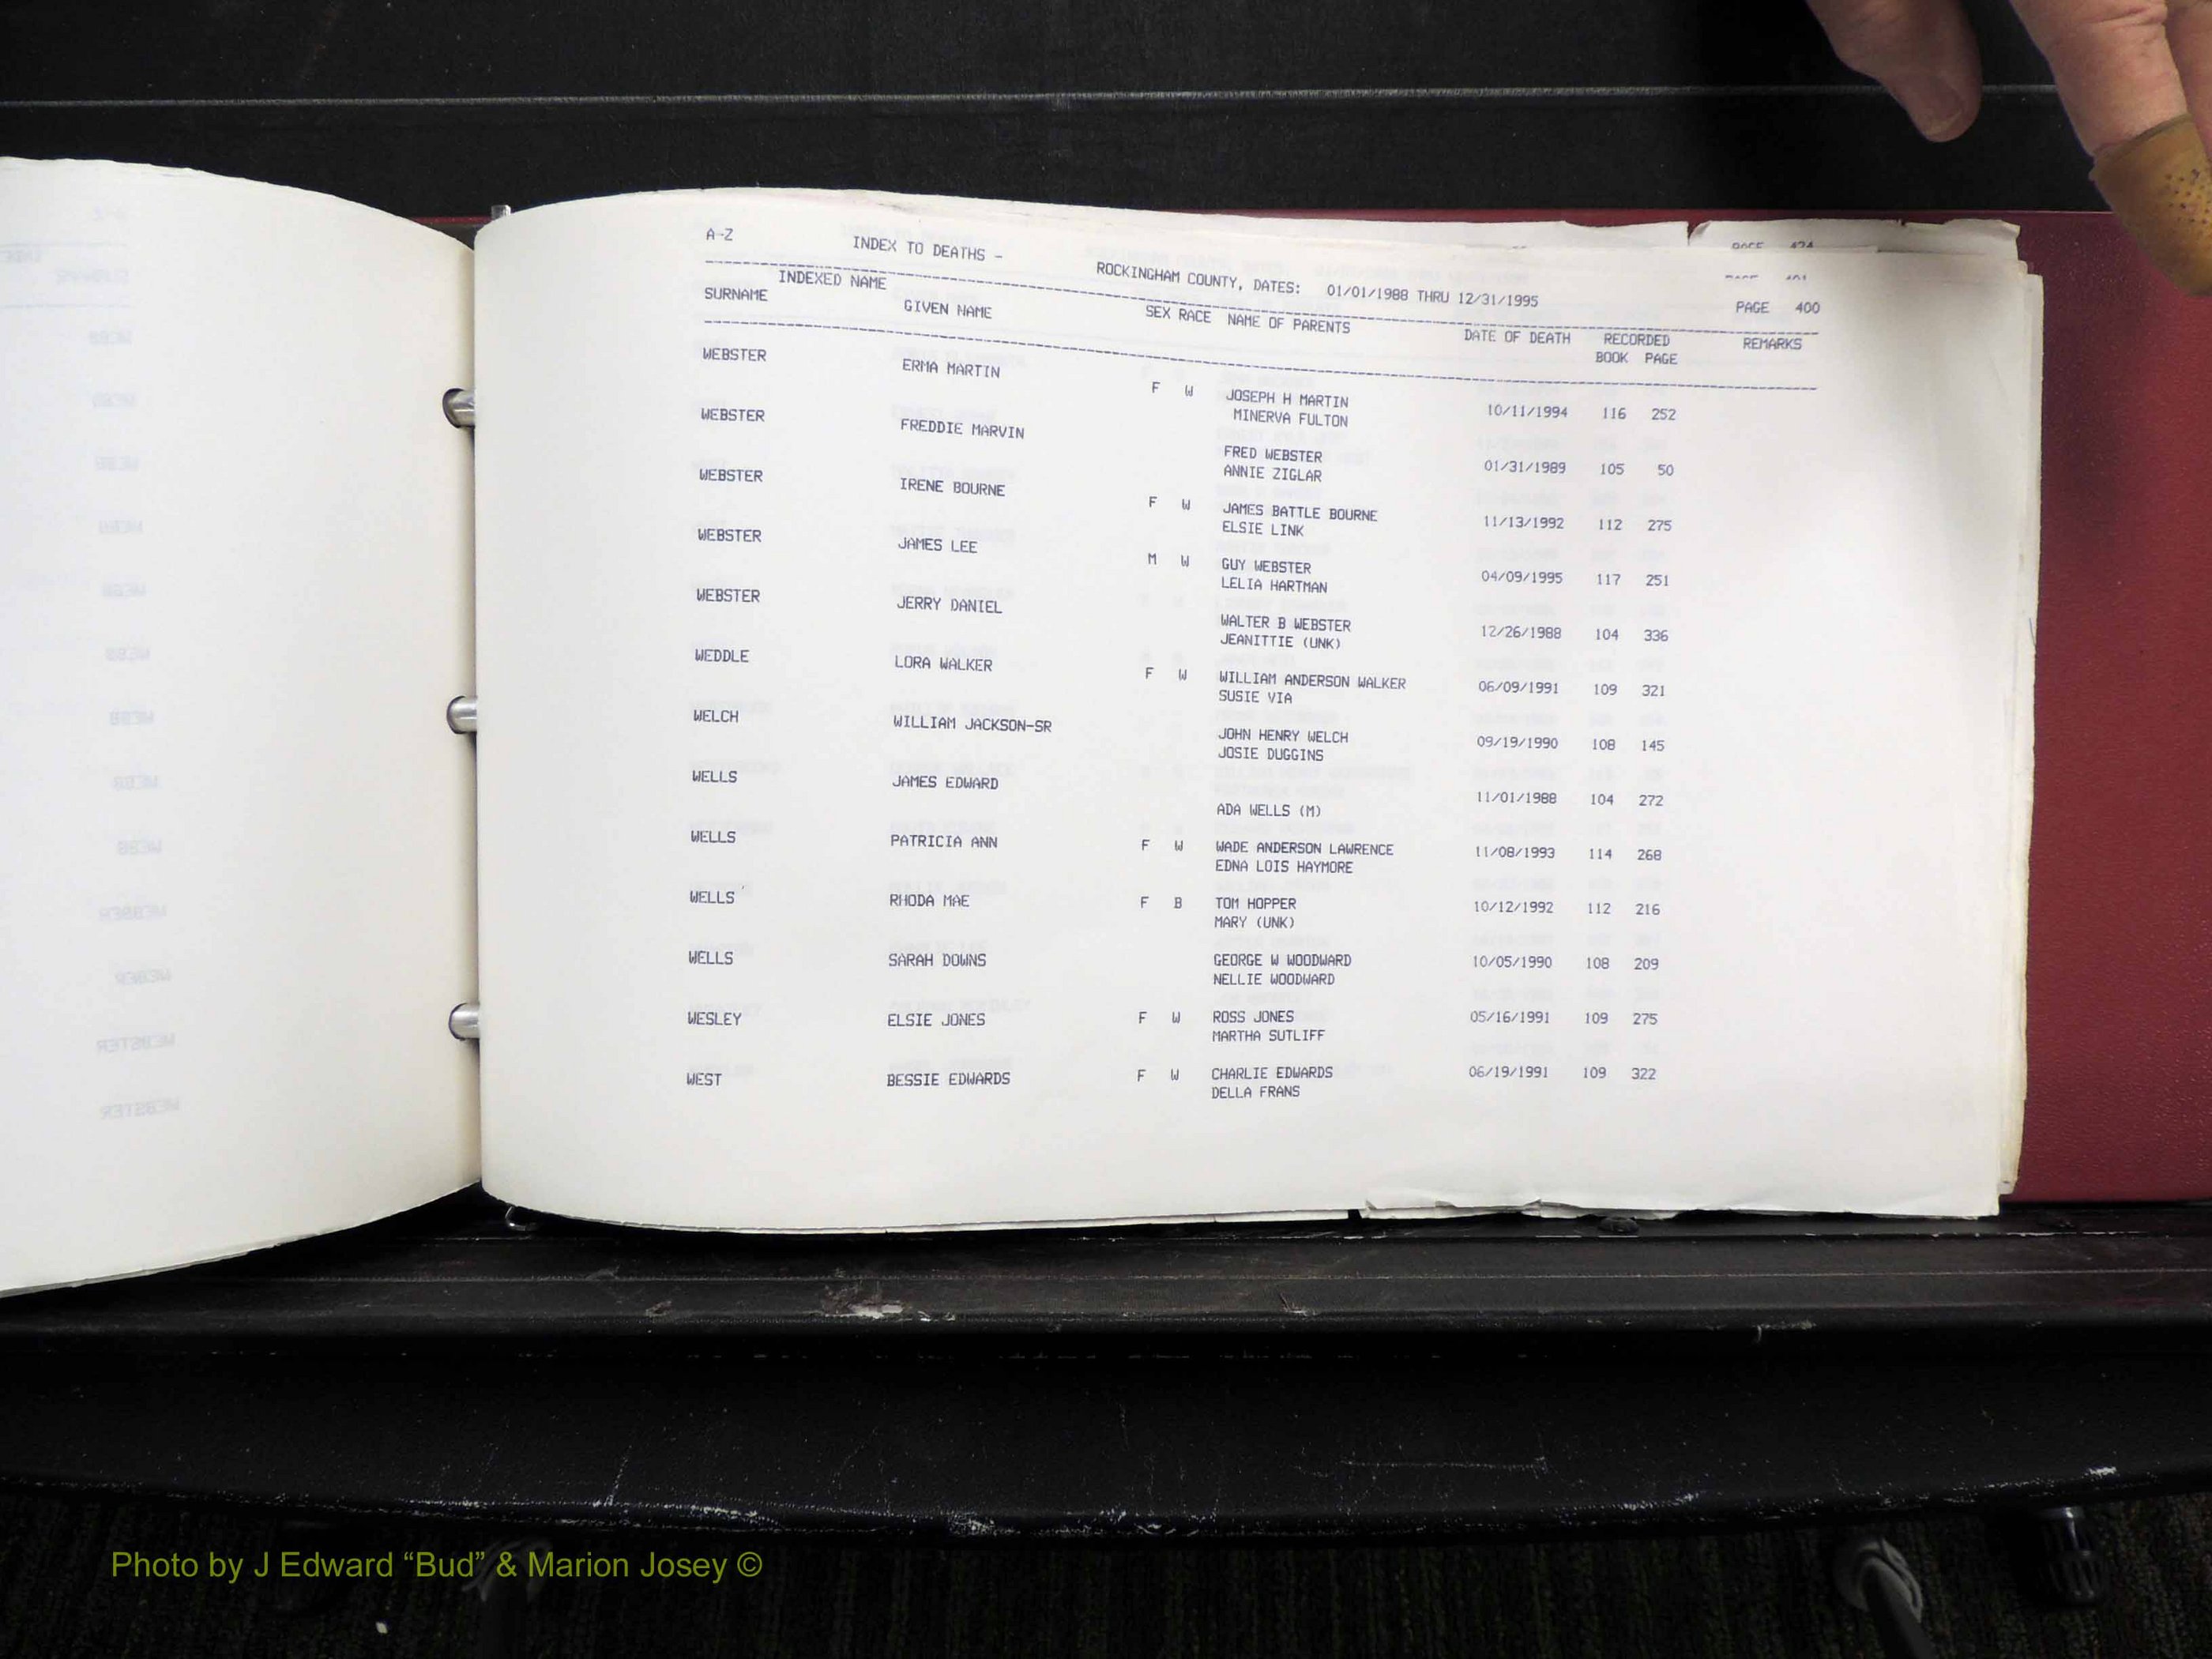 A-Z INDEX TO DEATHS - ROCKINGHAM COUNTY, DATES: 01/01/1988 THRU 12/31/1995 PAGE 400
INDEXED NAME
SURNAME GIVEN NAME SEX RACE NAME OF PARENTS DATE OF DEATH RECORDED REMARKS
BOOK PAGE
WEBSTER ERMA MARTIN F W JOSEPH H MARTIN 10/11/1994 116 252
MINERVA FULTON
WEBSTER FREDDIE MARVIN FRED WEBSTER 01/31/1989 105 50
ANNIE ZIGLAR
WEBSTER IRENE BOURNE F W JAMES BATTLE BOURNE 11/13/1992 112 275
ELSIE LINK
WEBSTER JAMES LEE M W GUY WEBSTER 04/09/1995 117 251
LELIA HARTMAN
WEBSTER JERRY DANIEL WALTER B WEBSTER 12/26/1988 104 336
JEANITTIE (UNK)
WEDDLE LORA WALKER F W WILLIAM ANDERSON WALKER 06/09/1991 109 321
SUSIE VIA
WELCH WILLIAM JACKSON-SR JOHN HENRY WELCH 09/19/1990 108 145
JOSIE DUGGINS
WELLS JAMES EDWARD 11/01/1988 104 272
ADA WELLS (M)
WELLS PATRICIA ANN F W WADE ANDERSON LAWRENCE 11/08/1993 114 268
EDNA LOIS HAYMORE
WELLS RHODA MAE F B TOM HOPPER 10/12/1992 112 216
MARY (UNK)
WELLS SARAH DOWNS GEORGE W WOODWARD 10/05/1990 108 209
NELLIE WOODWARD
WESLEY ELSIE JONES F W ROSS JONES 05/16/1991 109 275
MARTHA SUTLIFF
WEST BESSIE EDWARDS F W CHARLIE EDWARDS 06/19/1991 109 322
DELLA FRANS
Photo by J Edward “Bud” & Marion Josey ©